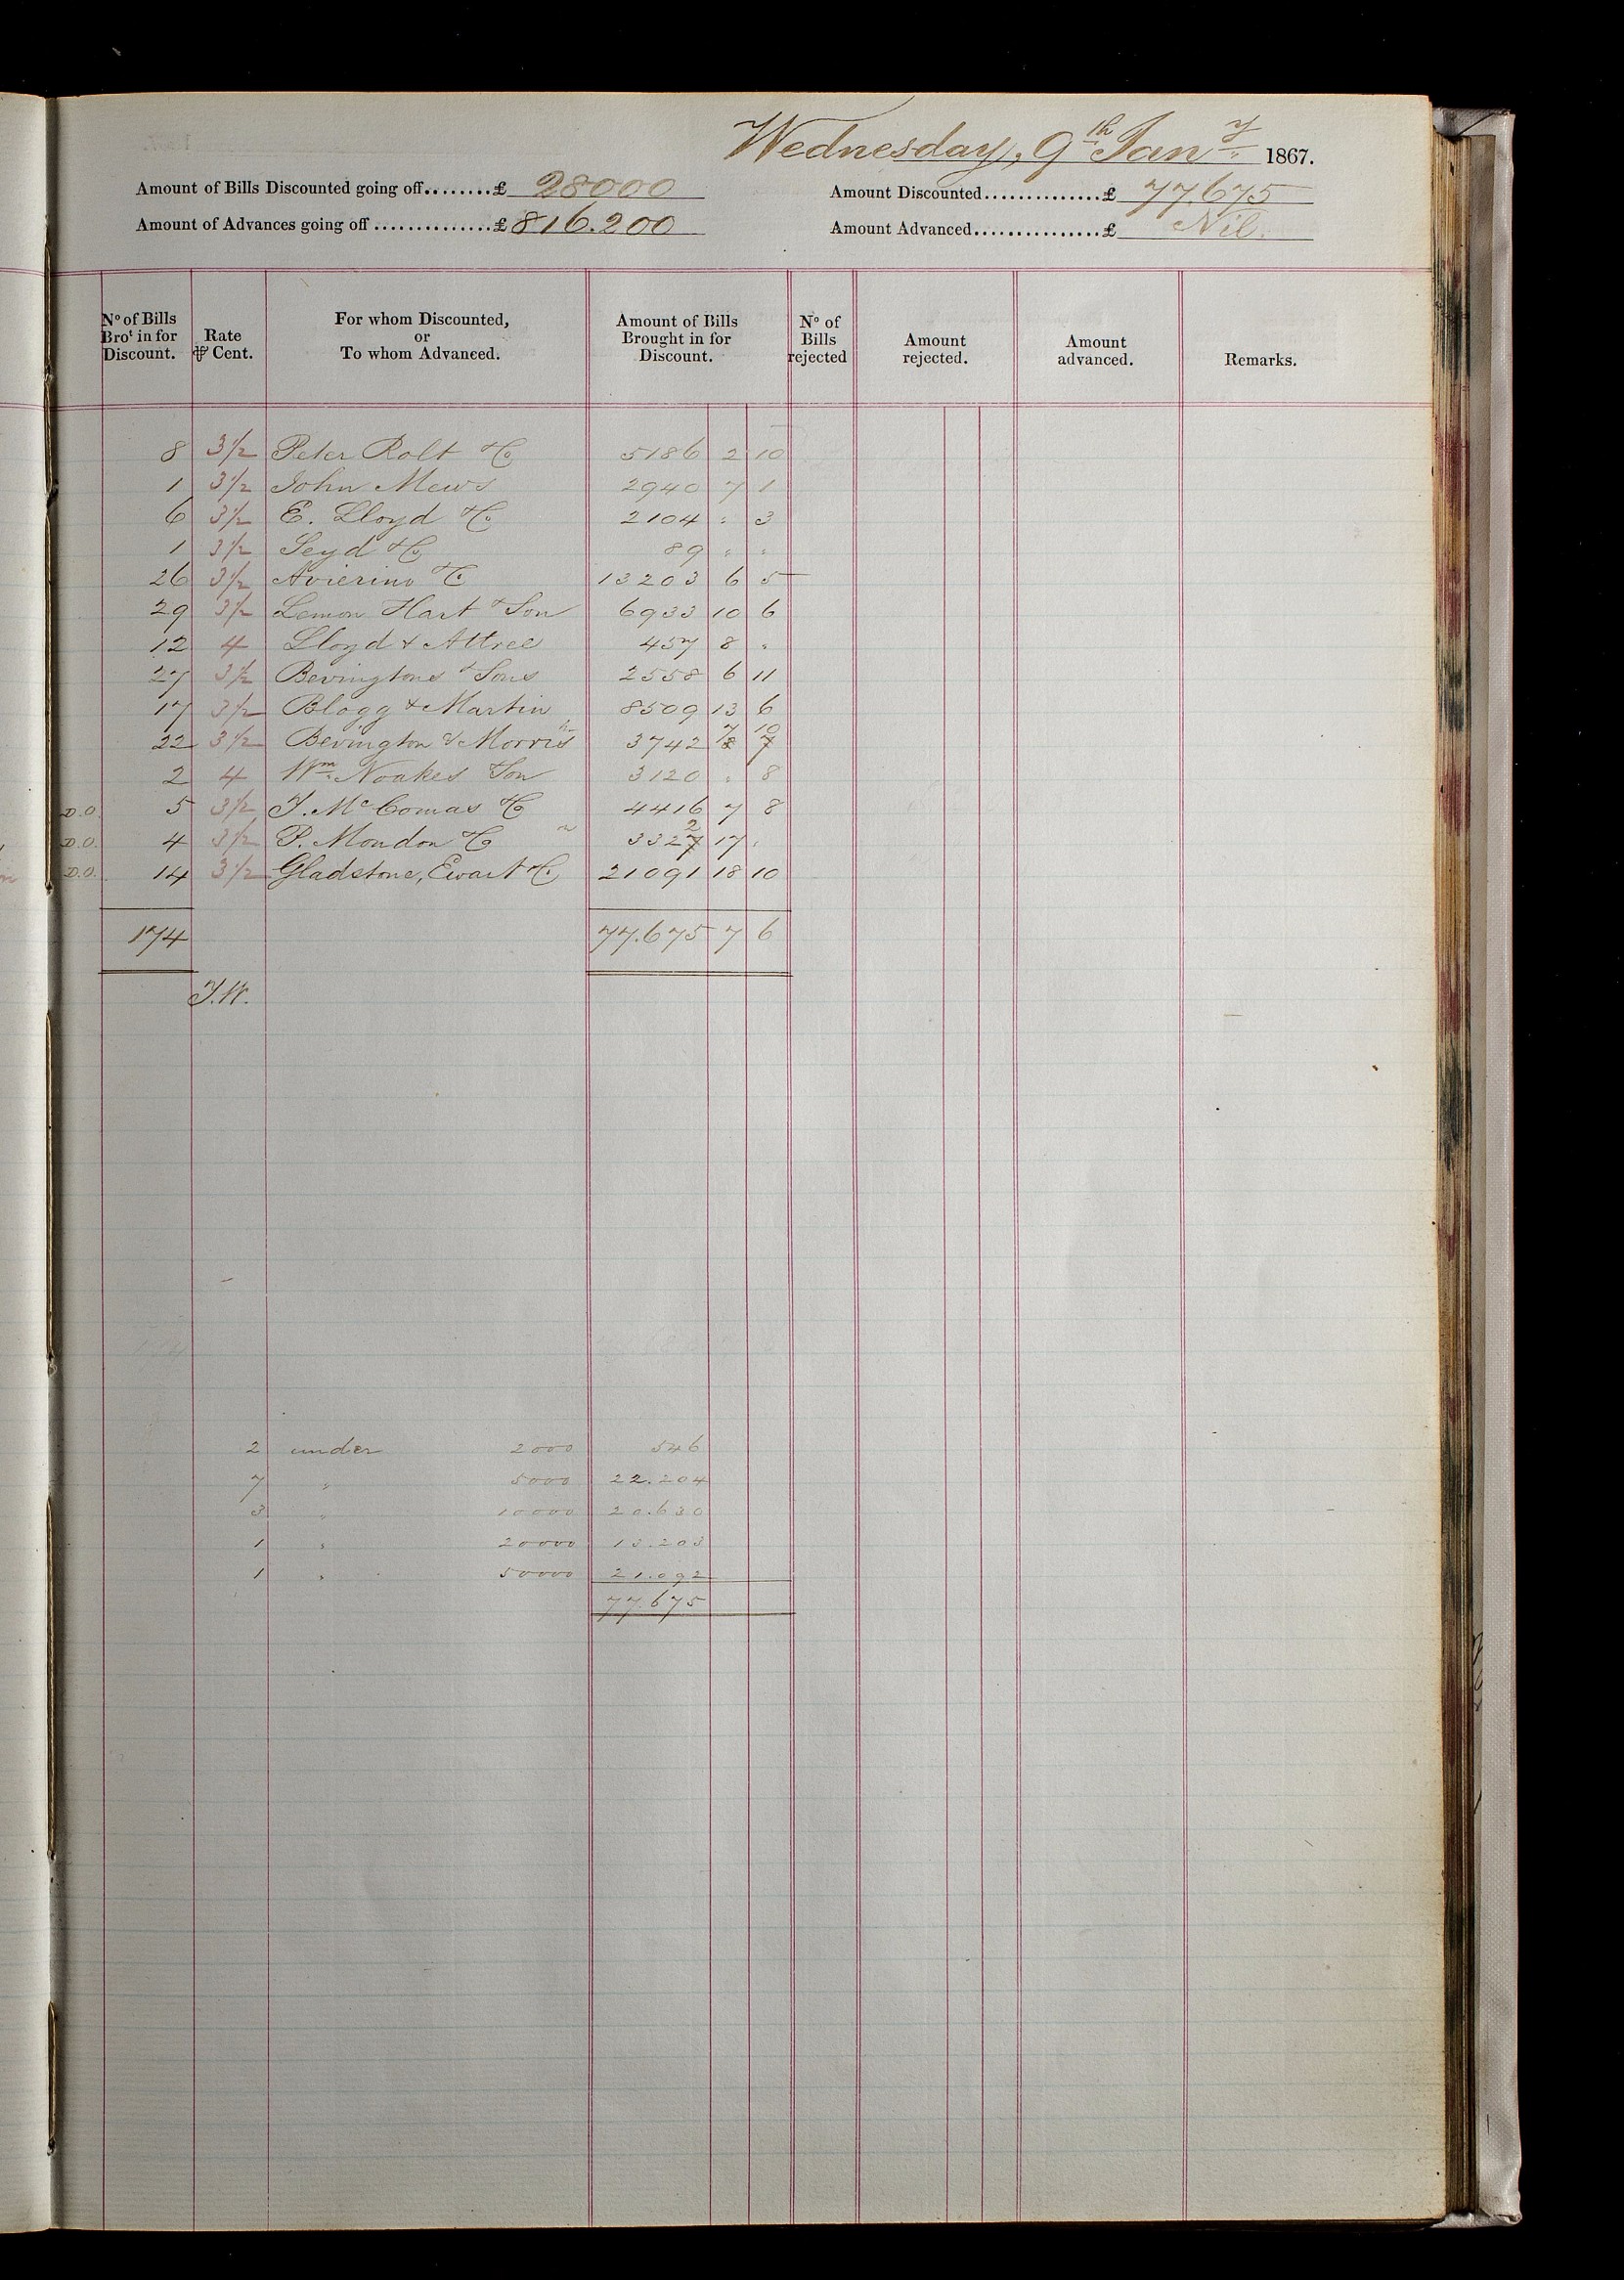 Wednesday, 9th Jany 1867.
Amount of Bills Discounted going off........£ 28000
Amount Discounted..............£ 77675
Amount of Advances going off..............£ 816.200
Amount Advanced................£ Nil.
No of Bills Brot in for Discount. Rate ⅌ Cent. For whom Discounted, or To whom Advanced. Amount of Bills Brought in for Discount. No of Bills rejected Amount rejected. Amount advanced. Remarks.
8 3½ Peter Rolt & Co 5186 2 10
1 3½ John Mews 2940 7 1
6 3½ E. Lloyd & Co 2104 " 3
1 3½ Seyd & Co 89 " "
26 3½ Avierino & Co 13203 6 5
29 3½ Lemon Hart & Son 6933 10 6
12 4 Lloyd & Attree 457 8 "
27 3½ Bevingtons & Sons 2558 6 11
17 3½ Blogg & Martin 8509 13 6
22 3½ Bevington & Morris 3742 7 10
2 4 Wm Noakes & Son 3120 " 8
D.O. 5 3½ J. McComas & Co 4416 7 8
D.O. 4 3½ P. Moudon & Co 3322 17 "
D.O. 14 3½ Gladstone, Ewart & Co 21091 18 10
174 77.675 7 6
J.W.
2 under 2000 546
7 " 5000 22.204
3 " 10000 20.630
1 " 20000 13.203
1 " 50000 21.092
77.675